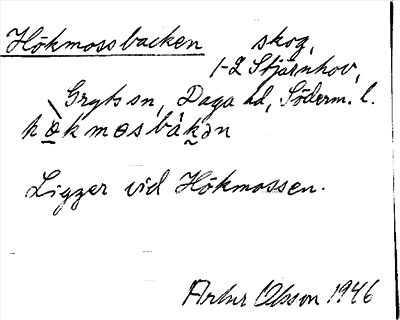 Hökmossbacken skog,
1-2 Stjärnhov,
Gryts sn, Daga hd, Söderm. l.
hö̀kmosbàkən
Ligger vid Hökmossen.
Artur Olsson 1946